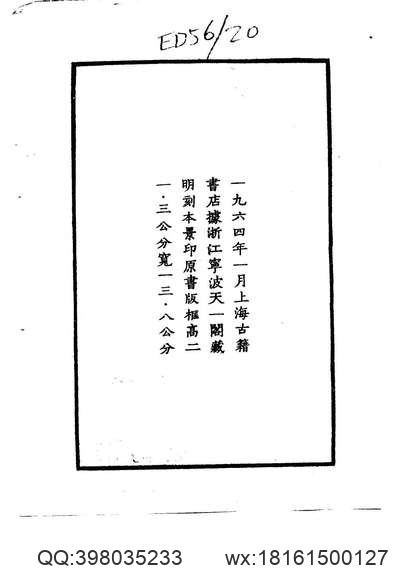 ED56/20
一九六四年一月上海古籍
書店據浙江寧波天一閣藏
明刻本景印原書版框高二
一·三公分寬一三·八公分
QQ:398035233 wx:18161500127